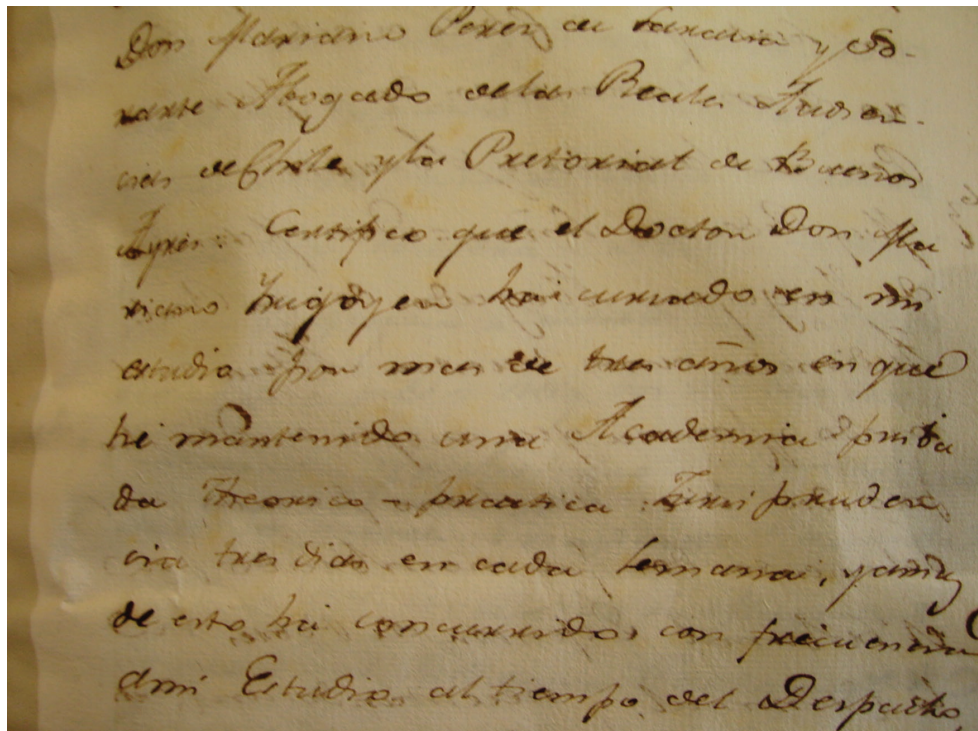 Don Mariano Perez de Saravia y So-
rarte Abogado delas Reales Audien-
cias de Chile yla Pretorial de Buenos
Ayres: Certifico que el Doctor Don Ma
riano Irigoyen ha cursado en mi
estudio por mas de tres años en que
he mantenido una Academia priba
da theorico - practica Jurispruden
cia tres dias en cada semana, yamas
de esto ha concurrido con frecuencia
ami Estudio al tiempo del Despacho